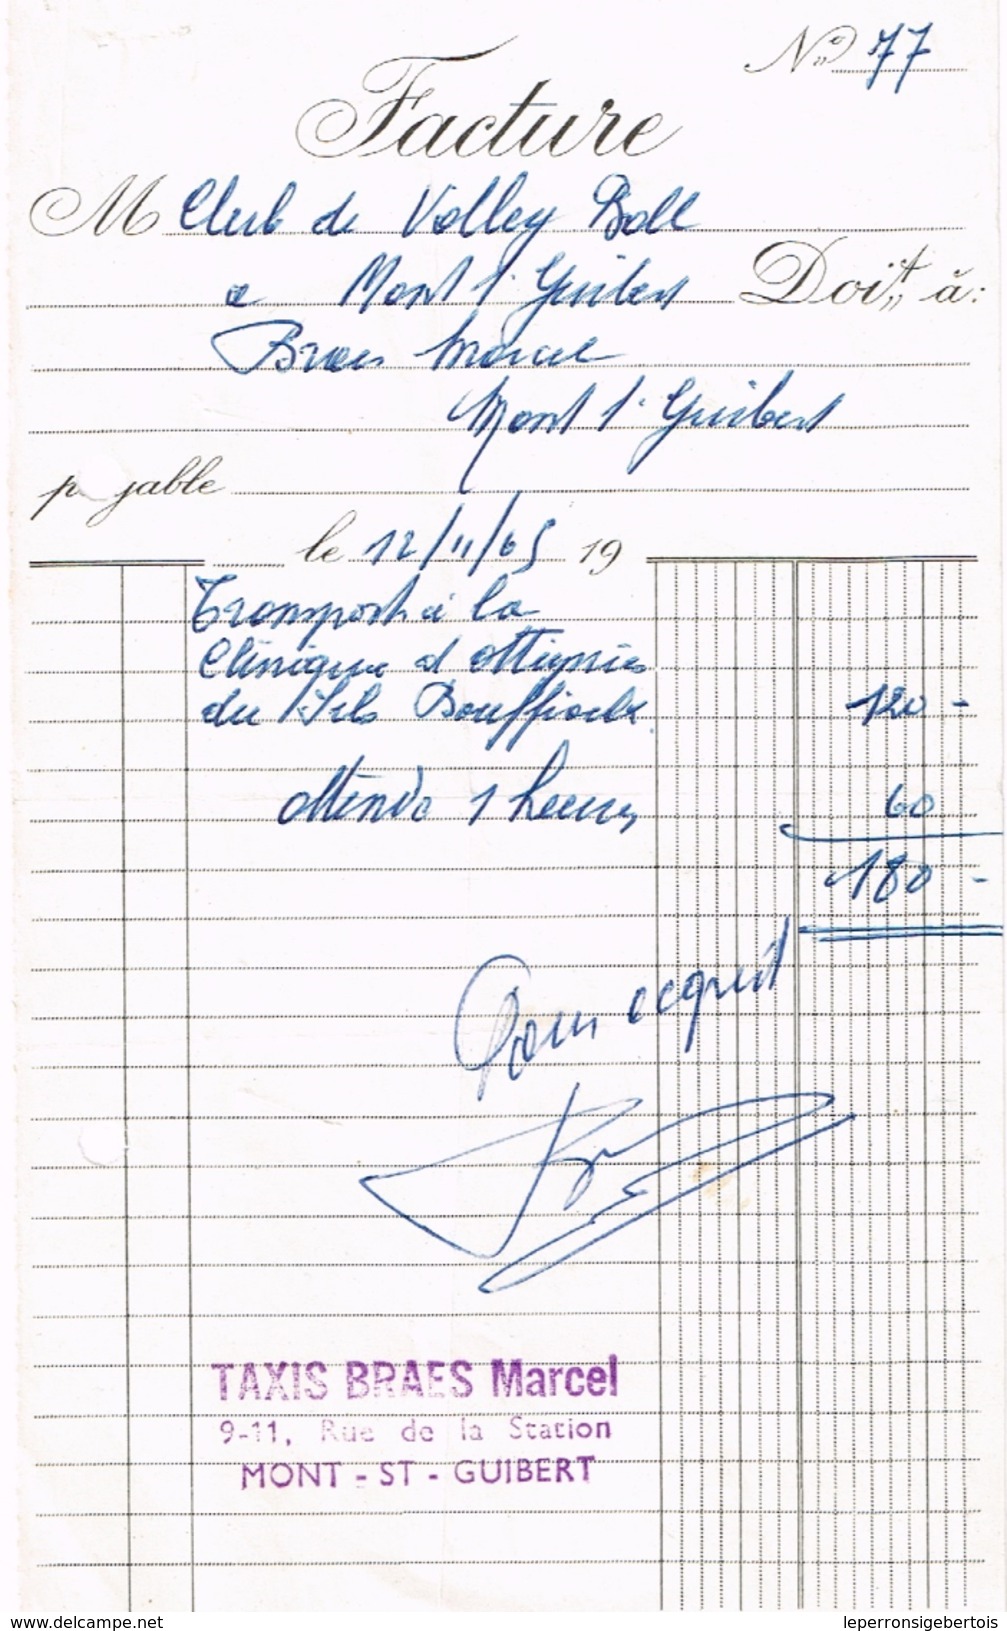 N° 77
Facture
M Club de Volley Ball
a Mont St Guibert Doit à:
Braes Marcel
Mont St Guibert
payable
le 12/11/65 19
Transport à la
Clinique d'Ottignies
du fils Bouffioulx 120 -
attendu 1 heure 60
180 -
Pour acquit
TAXIS BRAES Marcel
9-11, Rue de la Station
MONT - ST - GUIBERT
www.delcampe.net
leperronsigebertois